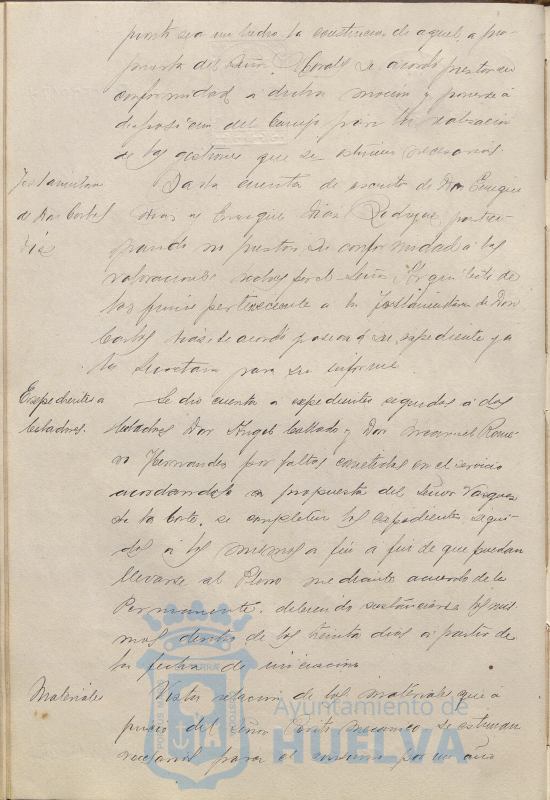 ponto sea un hecho la construccion de aquel, a pro-
puesta del Señor Morales se acordó prestar su
conformidad a dicha mocion y ponerse á
disposicion del Consejo para la realizacion
de las gestiones que se estimen necesarias
Testamentaria
de Don Carlos
Díaz
Dada cuenta de escrito de Don Enrique
Díaz Rodríguez, partici-
pando su conformidad á las
valoraciones hechas por el Señor Arquitecto de
las fincas perteneciente a la Testamentaria de Don
Carlos Díaz se acordó pasara á su expediente y a
la Secretaria para su informe.
Expedientes a
Celadores.
Se dio cuenta a expedientes seguidos á dos
Celadores Don Angel Collado y Don Manuel Rome-
ro Hernandez por faltas cometidas en el servicio
acordandose a propuesta del Señor Vazquez
de la Corte, se completen los expedientes segui-
dos á los mismos a fin a fin de que puedan
llevarse al Pleno mediante acuerdo de la
Permanente, debiendo sustanciarse los mis-
mos dentro de los treinta dias á partir de
la fecha de iniciacion
Materiales
Vista relacion de los materiales que a
juicio del Señor Perito mecanico se estiman
necesarios para el consumo por un año
Ayuntamiento de
HUELVA